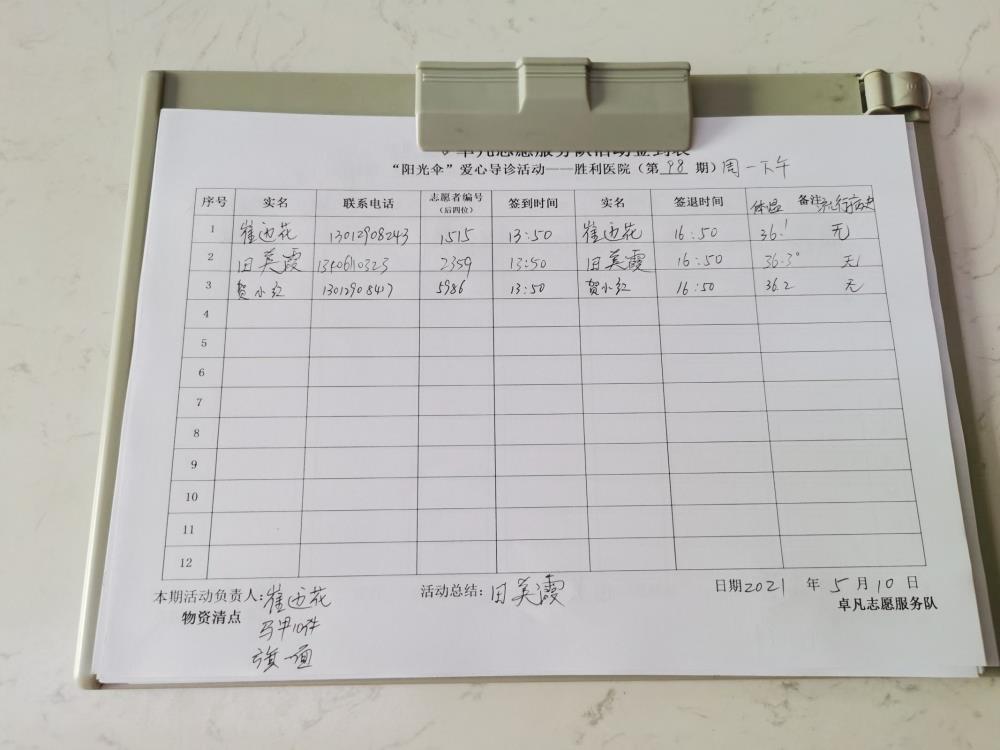 卓凡志愿服务队活动签到表
“阳光伞”爱心导诊活动——胜利医院（第 98 期）周一下午
序号 实名 联系电话 志愿者编号（后四位） 签到时间 实名 签退时间 体温 备注 旅行病史
1 崔迎花 13012908243 1515 13:50 崔迎花 16:50 36.1 无
2 田英霞 2359 13:50 田英霞 16:50 36.3° 无
3 贺小红 13012908417 5986 13:50 贺小红 16:50 36.2 无
4
5
6
7
8
9
10
11
12
本期活动负责人：崔迎花 活动总结：田英霞 日期2021 年 5 月 10 日
物资清点 卓凡志愿服务队
马甲10件
旗一面